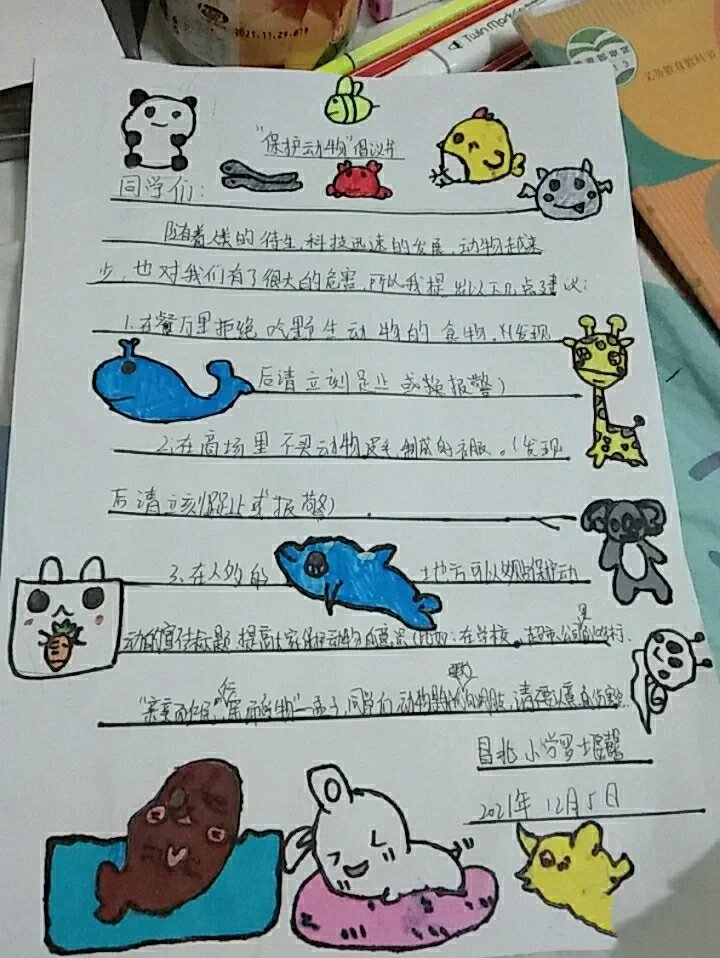 2021.11.29
Twin Marker
义务教育教科
"保护动物"倡议书
同学们:
随着人类的诞生,科技迅速的发展,动物越来
少,也对我们有了很大的危害,所以我提出以下几点建议:
1.在餐厅里拒绝吃野生动物的食物。(发现
后请立刻 止或 报警)
2.在商场里不买动物皮毛制成的衣服。(发现
后请立刻 止或报警)
3.在人多的 地方可以 贴保护动
动的宣传标题,提高大家保护动物的意识(比如:在学校、超市、公司里 )
"亲亲而仁民,仁民而爱物"—孟子,同学们,动物是我们的朋友,请
昌北小学罗
2021年12月5日